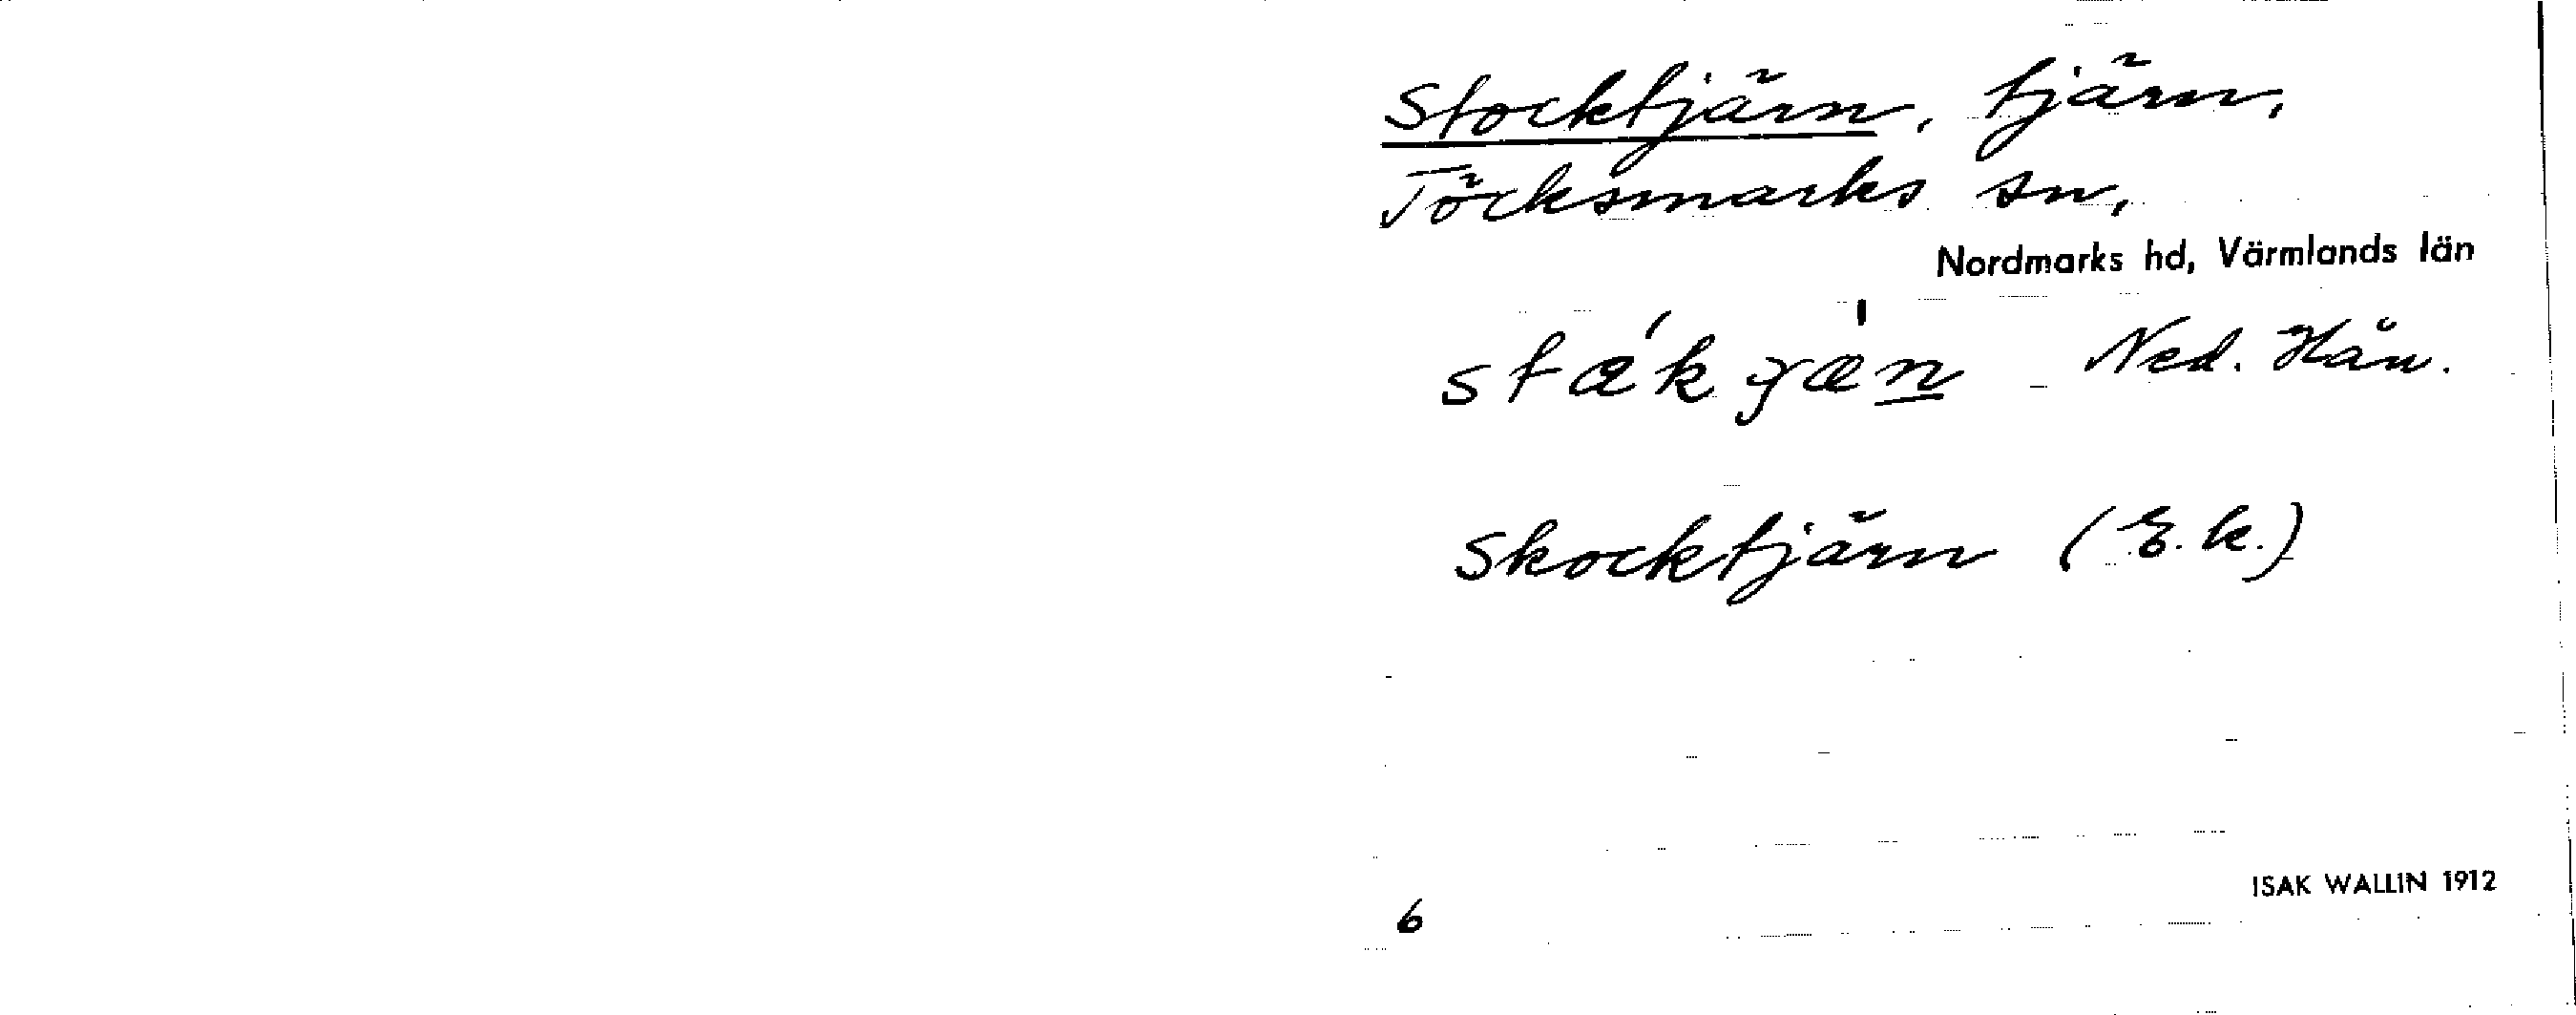 Stocktjärn, tjärn,
Töcksmarks sn,
Nordmarks hd, Värmlands län
Ned. Hån.
Skocktjärn (E.k.)
6
ISAK WALLIN 1912